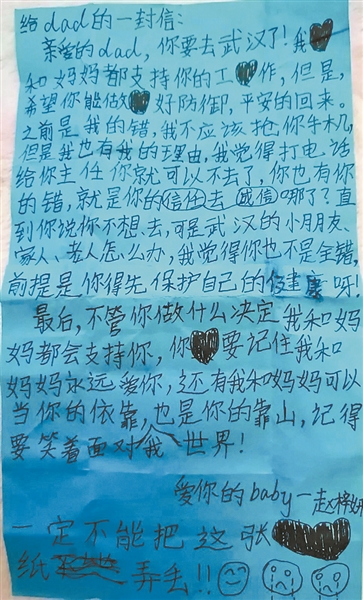 给dad的一封信:
亲爱的dad,你要去武汉了!我
和妈妈都支持你的工作,但是,
希望你能做好防御,平安的回来。
之前是我的错,我不应该抢你手机,
但是我也有我的理由,我觉得打电话
给你主任你就可以不去了,你也有你
的错,就是你的信任去诚信哪了?直
到你说你不想去,可是武汉的小朋友、
家人、老人怎么办,我觉得你也不是全错,
前提是你得先保护自己的健康呀!
最后,不管你做什么决定我和妈
妈都会支持你,你要记住我和
妈妈永远爱你,还有我和妈妈可以
当你的依靠,也是你的靠山,记得
要笑着面对我世界!
爱你的baby—赵梓妍
一定不能把这张
纸弄丢!!